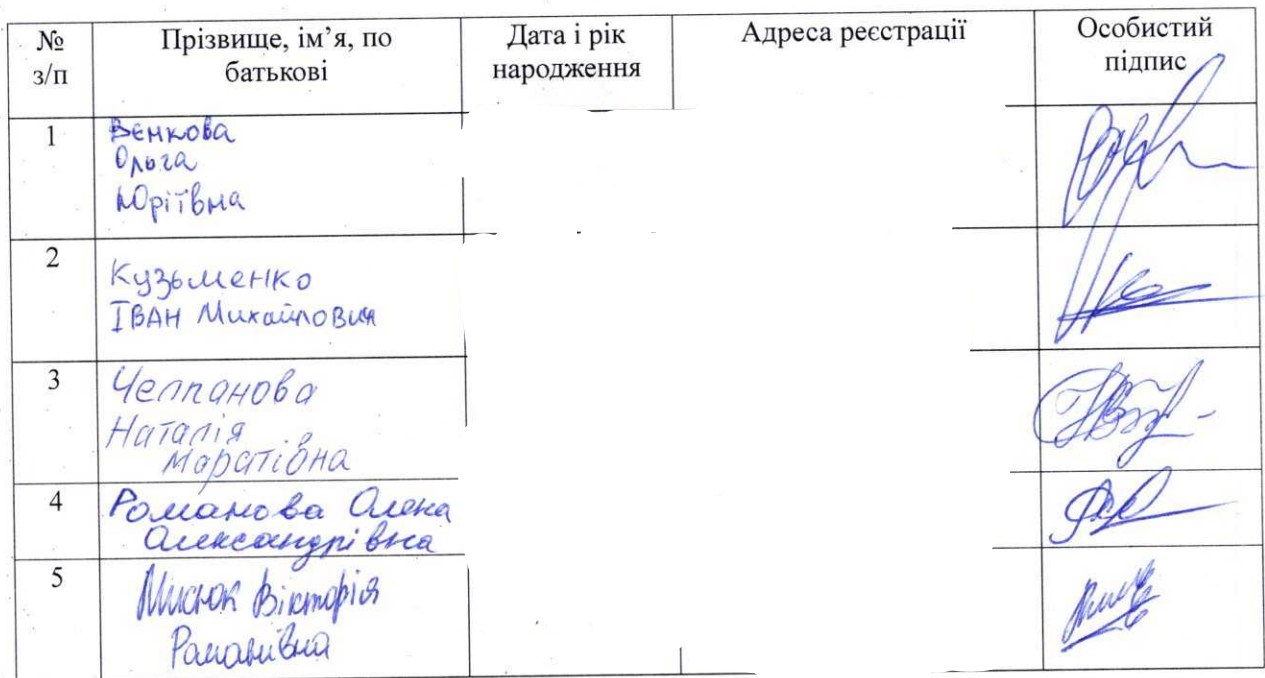 № з/п Прізвище, ім’я, по батькові Дата і рік народження Адреса реєстрації Особистий підпис
1 Вєнкова
Ольга
Юріївна
2 Кузьменко
ІВАН Михайлович
3 Челпанова
Наталія
Маратівна
4 Романова Олена
Олександрівна
5 Вікторія
Романівна